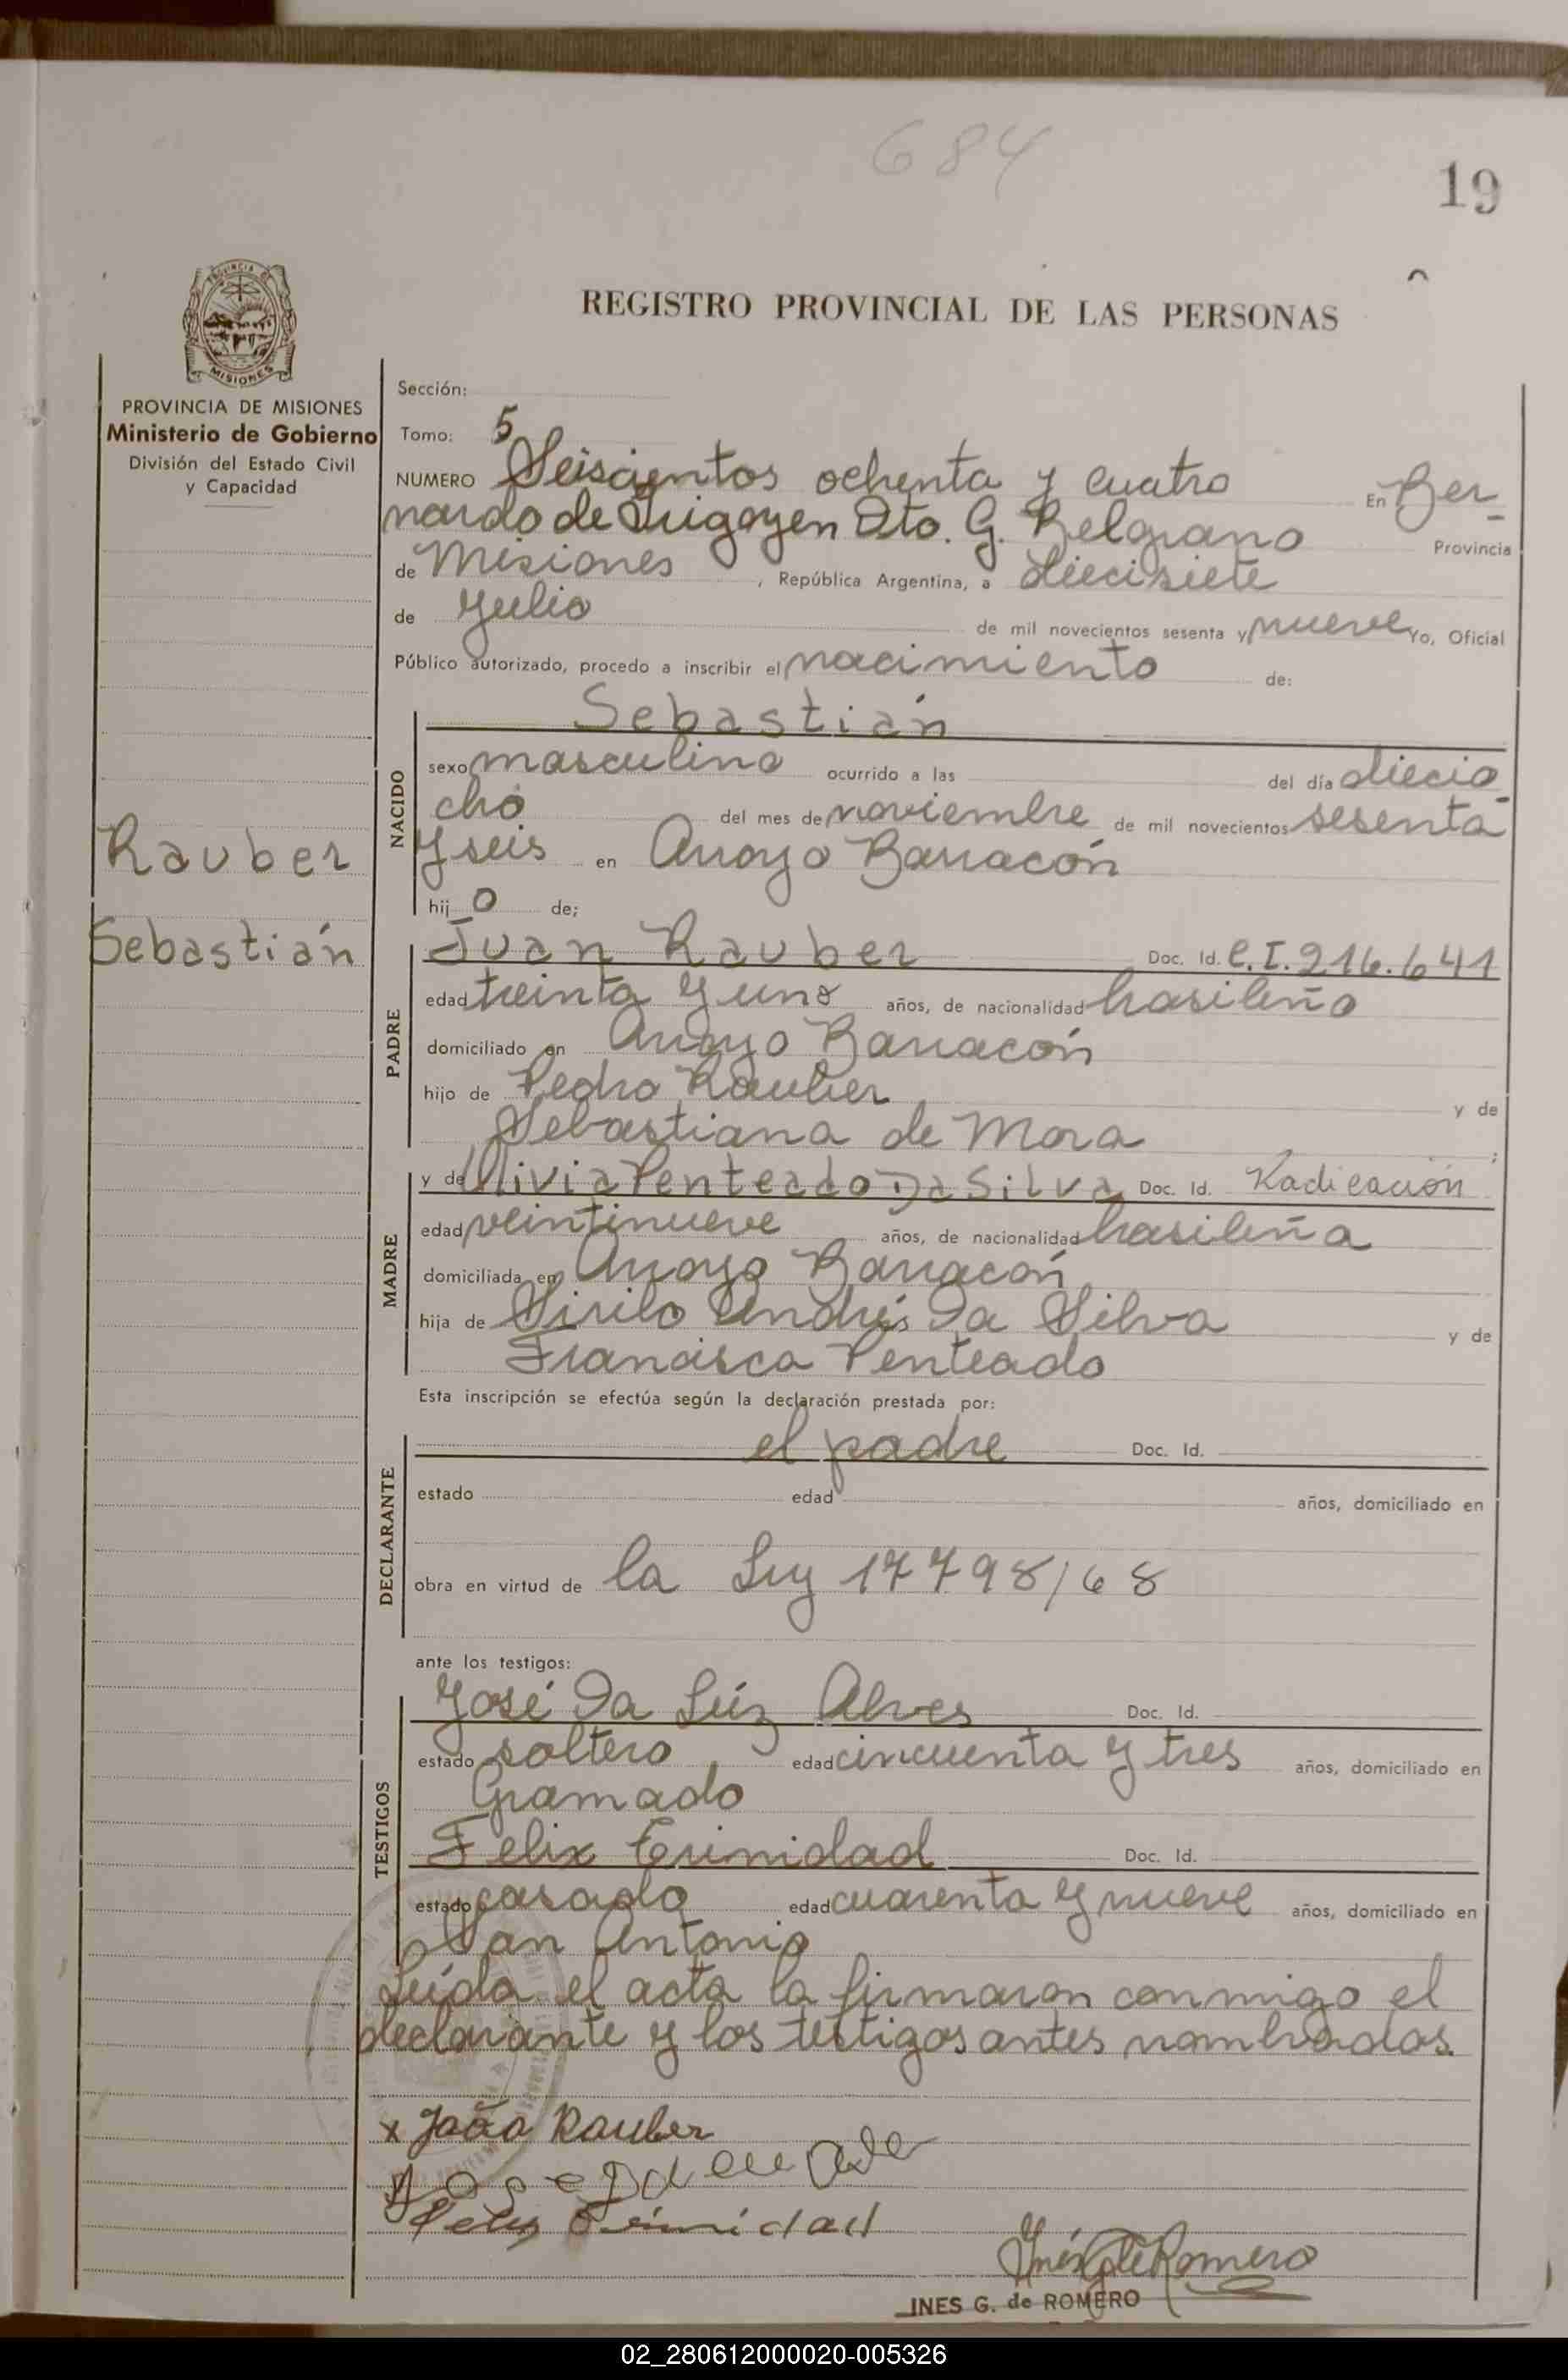 684
19
REGISTRO PROVINCIAL DE LAS PERSONAS
PROVINCIA DE MISIONES
Ministerio de Gobierno
División del Estado Civil
y Capacidad
Sección:
Tomo: 5
NUMERO Seiscientos ochenta y cuatro En Ber-
nardo de Irigoyen Dto. G. Belgrano Provincia
de Misiones, República Argentina, a diecisiete
de Julio de mil novecientos sesenta y nueve Yo, Oficial
Público autorizado, procedo a inscribir el nacimiento de:
NACIDO
Sebastián
sexo masculino ocurrido a las del día diecio-
cho del mes de noviembre de mil novecientos sesenta
y seis en Arroyo Barracón
hijo de;
Rauber
Sebastián
PADRE
Juan Rauber Doc. Id. C.I. 216.641
edad treinta y uno años, de nacionalidad brasileño
domiciliado en Arroyo Barracón
hijo de Pedro Rauber y de
Sebastiana de Mora ;
MADRE
y de Olivia Penteado Da Silva Doc. Id. Radicación
edad veintinueve años, de nacionalidad brasileña
domiciliada en Arroyo Barracón
hija de Sirilo Andrés Da Silva y de
Francisca Penteado
Esta inscripción se efectúa según la declaración prestada por:
DECLARANTE
el padre Doc. Id.
estado edad años, domiciliado en
obra en virtud de la Ley 17798/68
ante los testigos:
TESTIGOS
José Da Lúz Alves Doc. Id.
estado soltero edad cincuenta y tres años, domiciliado en
Gramado
Felix Trinidad Doc. Id.
estado casado edad cuarenta y nueve años, domiciliado en
San Antonio
Leída el acta la firmaron conmigo el
declarante y los testigos antes nombrados.
x João Rauber
Felix Trinidad
Inés G de Romero
INES G. de ROMERO
02_280612000020-005326